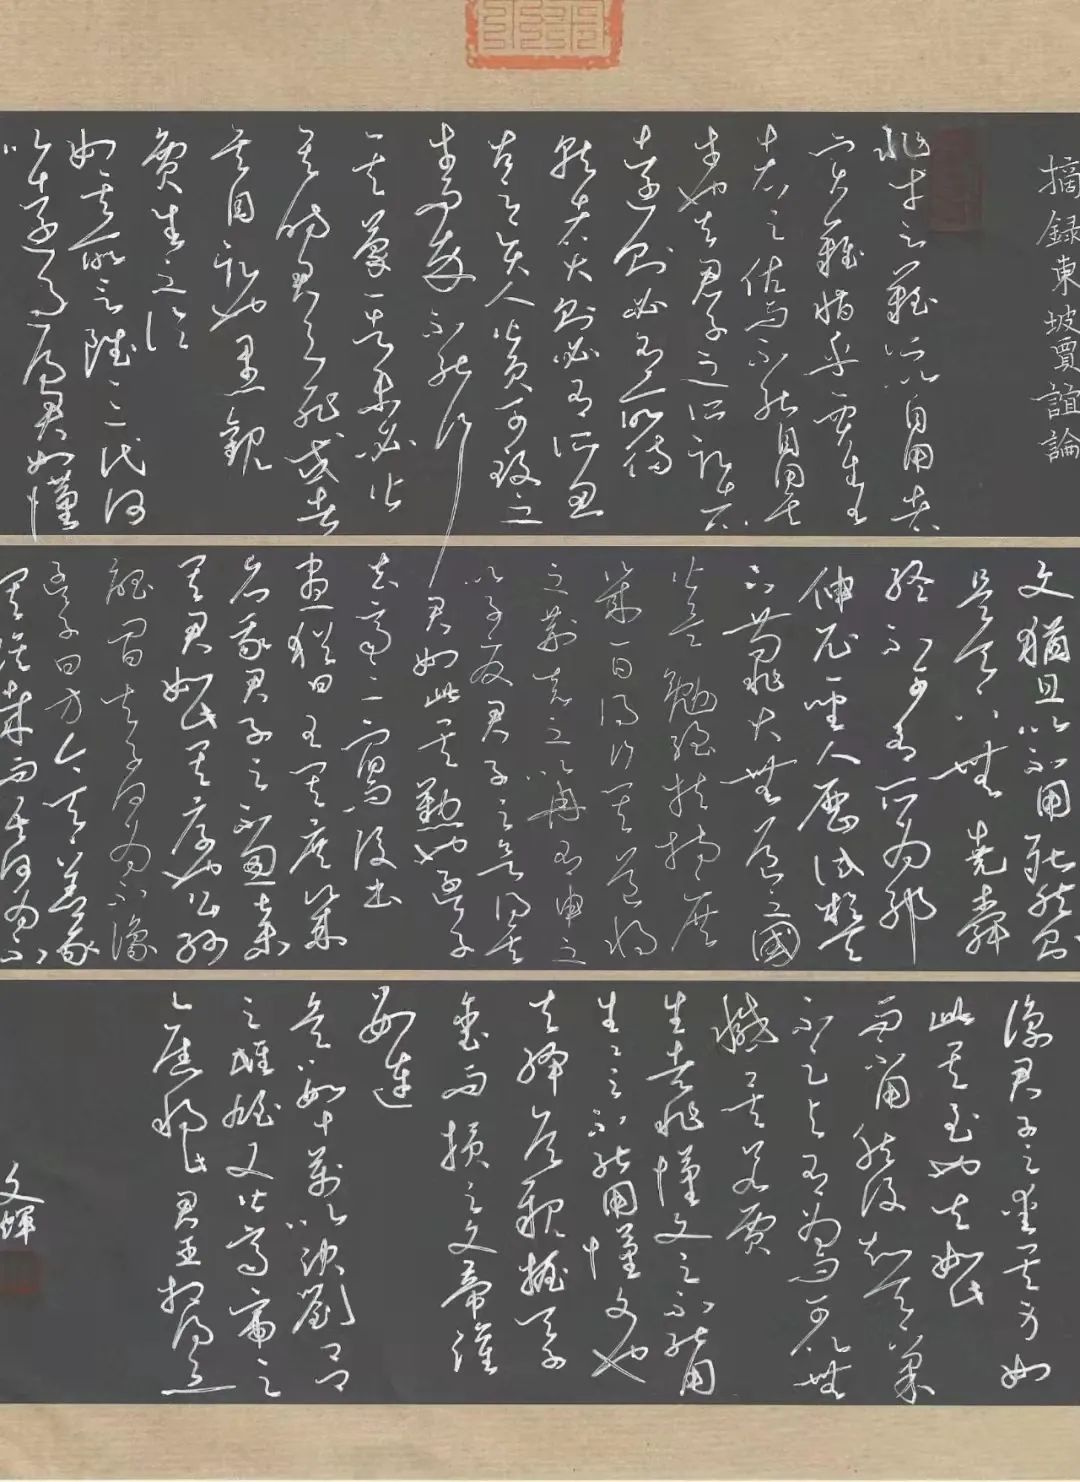 摘録東坡賈誼論
非才之難所以自用者
實難惜乎賈生王
者之佐而不能自用其
才也夫君子之所取者
遠則必有所待
所就者大則必有所忍
古之賢人皆負可致之
才而卒不能行
其萬一者未必皆
其時君之罪或者
其自取也愚觀
賈生之論
如其所言雖三代何
以遠過得君如漢
文猶且以不用死然則
是天下無堯舜
終不可有所為耶
仲尼聖人歷試於天
下苟非大無道之國
皆欲勉強扶持庶
幾一日得行其道將
之荆先之以冉有申之
以子夏君子之欲得其
君如此其勤也孟子
去齊三宿而後出
晝猶曰王其庶幾
召我君子之不忍棄
其君如此其厚也公孫
醜問曰夫子何為不豫
孟子曰方今天下舍我
其誰哉而吾何為不
豫君子之愛其身如
此其至也夫如此
而不用然後知天下果
不足與有為而可以無
憾矣若賈
生者非漢文之不能用
生生之不能用漢文也
夫絳侯親握天子
璽而授之文帝灌
嬰連
兵數十萬以決劉呂
之雌雄又皆高帝之
舊將此其君臣相得之
文輝